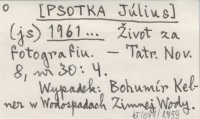 o [PSOTKA Július]
(js) 1961... Život za
fotografiu. - Tatr. Nov.
8, nr 30: 4.
Wypadek: Bohumír Keb-
ner w Wodospadach Zimnej Wody.